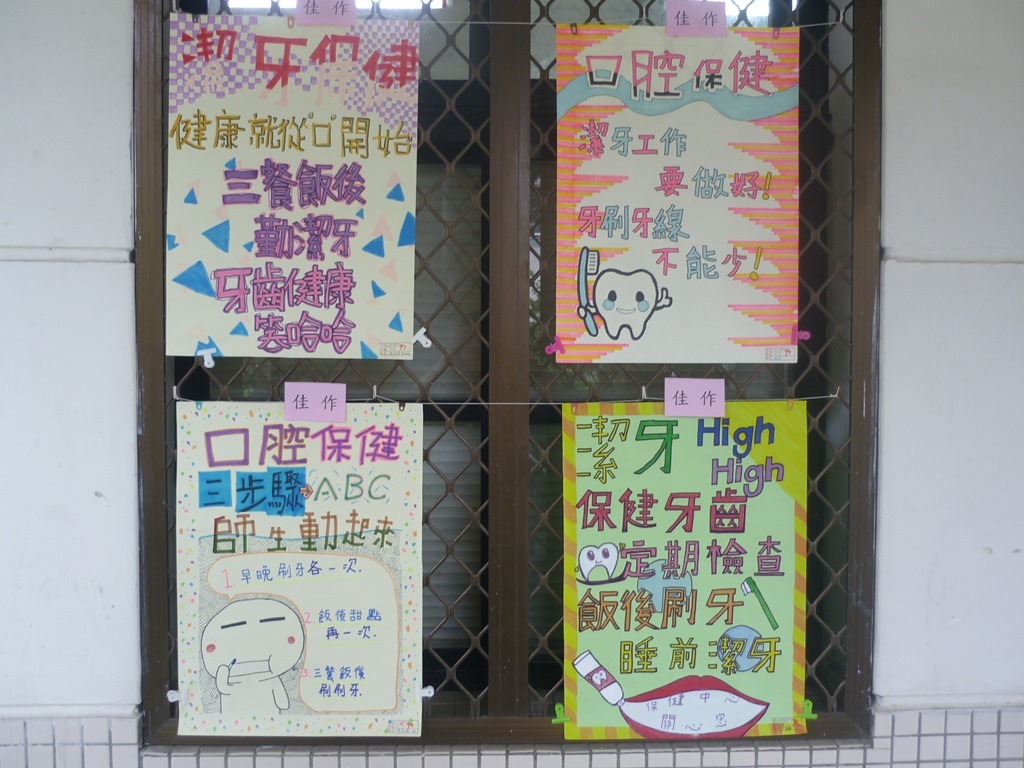 佳作
潔牙保健
健康就從"口"開始
三餐飯後
勤潔牙
牙齒健康
笑哈哈
佳作
口腔保健
潔牙工作
要做好!
牙刷牙線
不能少!
佳作
口腔保健
三步驟→ABC
師生動起來
1. 早晚刷牙各一次.
2. 飯後甜點
再一次.
3. 三餐飯後
刷刷牙.
佳作
潔牙High
High
保健牙齒
定期檢查
飯後刷牙
睡前潔牙
保健中心
關心您